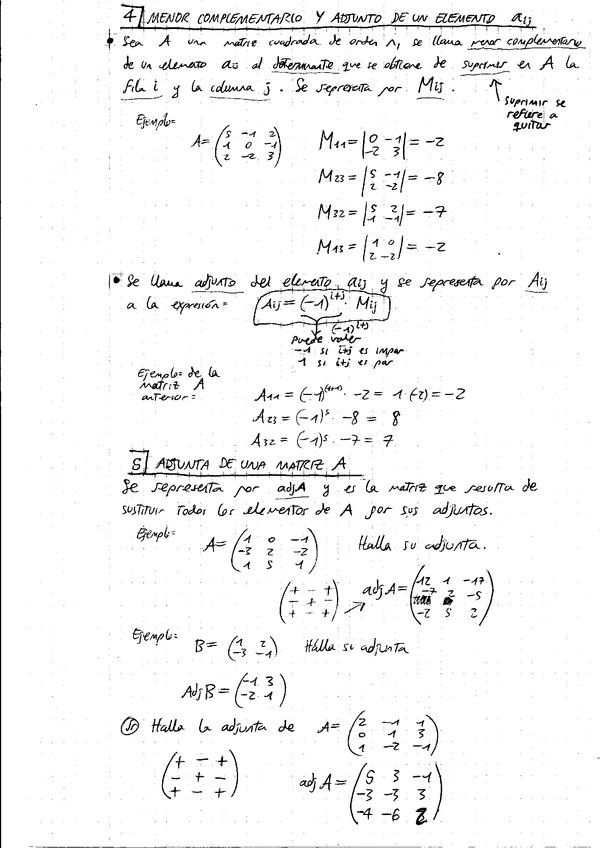 4 MENOR COMPLEMENTARIO Y ADJUNTO DE UN ELEMENTO aij
• Sea A una matriz cuadrada de orden n, se llama menor complementario
de un elemento aij al determinante que se obtiene de suprimir en A la
fila i y la columna j. Se representa por Mij.
suprimir se
refiere a
quitar
Ejemplo=
A= (5 -1 2
1 0 -1
2 -2 3)
M11 = |0 -1
-2 3| = -2
M23 = |5 -1
2 -2| = -8
M32 = |5 2
1 -1| = -7
M13 = |1 0
2 -2| = -2
• Se llama adjunto del elemento aij y se representa por Aij
a la expresión= Aij = (-1)^i+j · Mij
(-1)^i+j
puede valer
-1 si i+j es impar
1 si i+j es par
Ejemplo= de la
matriz A
anterior=
A11 = (-1)^(1+1) · -2 = 1·(-2) = -2
A23 = (-1)^5 · -8 = 8
A32 = (-1)^5 · -7 = 7
5 ADJUNTA DE UNA MATRIZ A
Se representa por adjA y es la matriz que resulta de
sustituir todos los elementos de A por sus adjuntos.
Ejemplo=
A= (1 0 -1
-3 2 -2
1 5 1)
Halla su adjunta.
(+ - +
- + -
+ - +)
adj A = (12 1 -17
-7 2 -5
-2 5 2)
Ejemplo=
B = (1 2
-3 -1)
Halla su adjunta
Adj B = (-1 3
-2 1)
Halla la adjunta de A= (2 -1 1
0 1 3
1 -2 -1)
(+ - +
- + -
+ - +)
adj A = (5 3 -1
-3 -3 3
-4 -6 2)